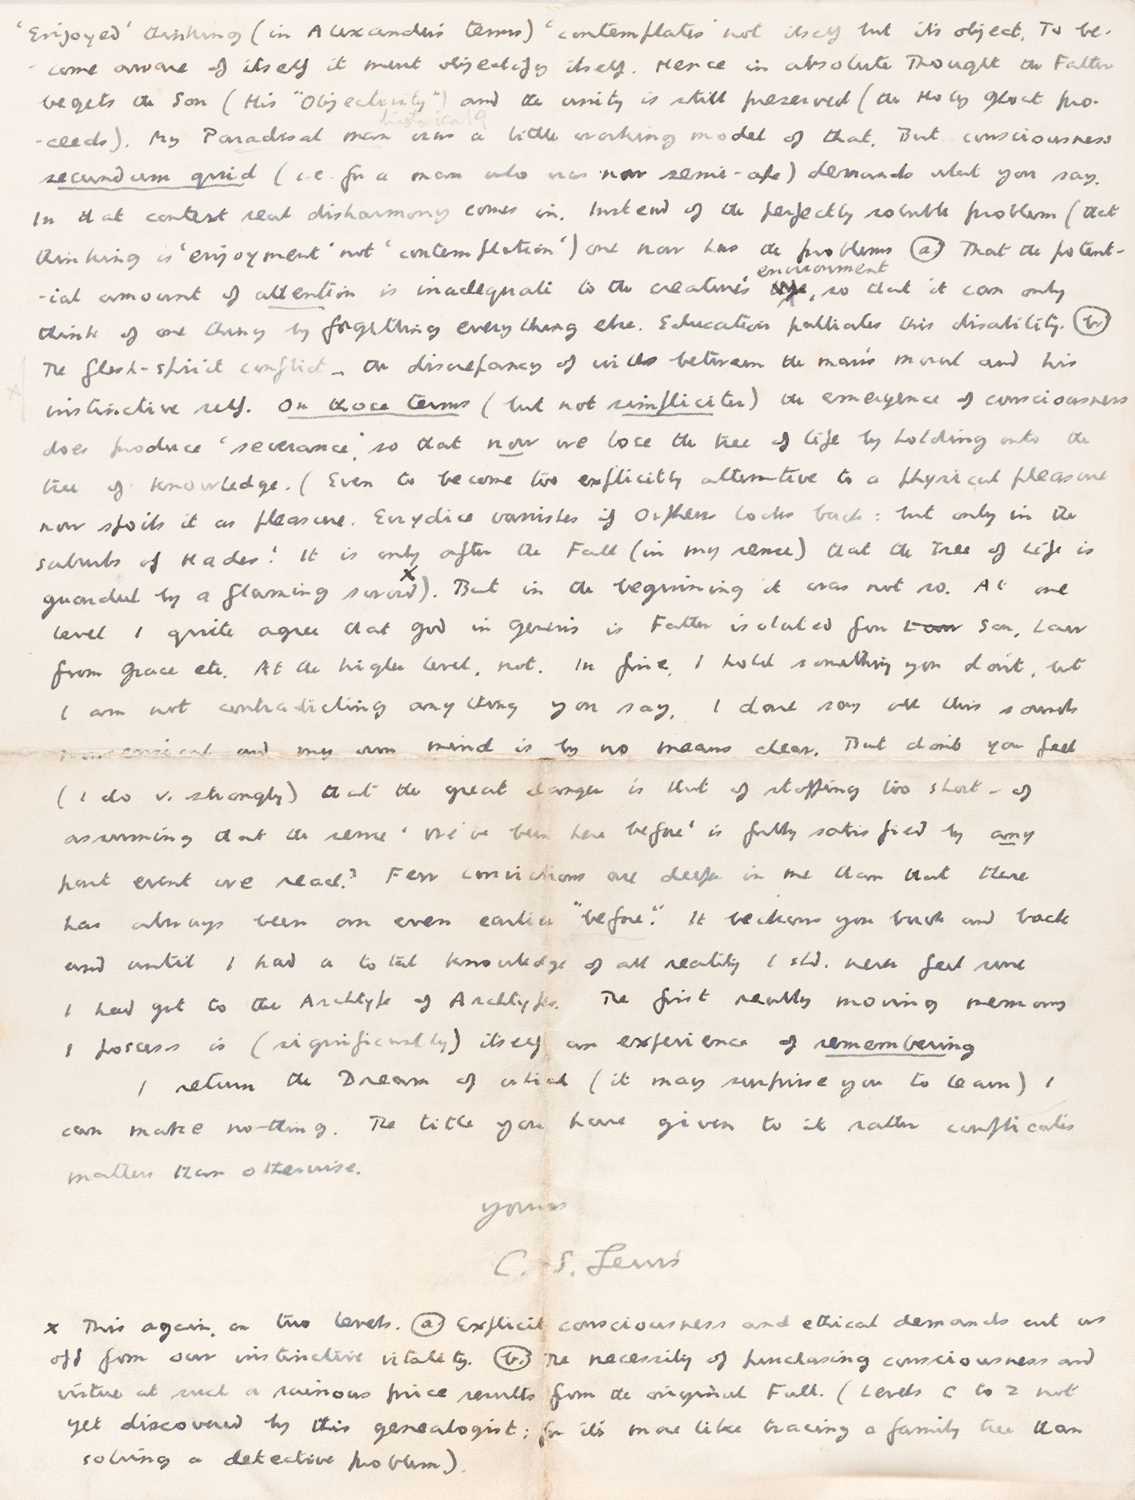 'Enjoyed' thinking (in Alexander's terms) 'contemplates' not itself but its object. To be-
-come aware of itself it must objectify itself. Hence in absolute Thought the Father
begets the Son (His "Objectivity") and the unity is still preserved (the Holy Ghost pro-
-ceeds). My Paradisal man was a little working model of that. But consciousness
secundum quid (i.e. for a man who was now semi-ape) demands what you say.
In that context real disharmony comes in. Instead of the perfectly soluble problem (that
thinking is 'enjoyment' not 'contemplation') one now has the problems (a.) That the potent-
-ial amount of attention is inadequate to the creature's environment, so that it can only
think of one thing by forgetting everything else. Education palliates this disability. (b.)
The flesh-spirit conflict – the discrepancy of wills between the man's moral and his
instinctive self. On those terms (but not simpliciter) the emergence of consciousness
does produce 'severance', so that now we lose the tree of life by holding onto the
tree of knowledge. (Even to become too explicitly attentive to a physical pleasure
now spoils it as pleasure. Eurydice vanishes if Orpheus looks back: but only in the
suburbs of Hades! It is only after the Fall (in my sense) that the Tree of Life is
guarded by a flaming sword x). But in the beginning it was not so. At one
level I quite agree that God in Genesis is Father isolated from Son, Law
from Grace etc. At the higher level, not. In fine, I hold something you don't, but
I am not contradicting anything you say. I dare say all this sounds
nonsensical and my own mind is by no means clear. But don't you feel
(I do v. strongly) that the great danger is that of stopping too short – of
assuming that the sense 'We've been here before' is fully satisfied by any
past event we reach? Few convictions are deeper in me than that there
has always been an even earlier "before". It beckons you back and back
and until I had a total knowledge of all reality I shd. never feel sure
I had got to the Archtype of Archtypes. The first really moving memory
I possess is (significantly) itself an experience of remembering
I return the Dream of which (it may surprise you to learn) I
can make no-thing. The title you have given to it rather complicates
matters than otherwise.
Yours
C. S. Lewis
x This again, on two levels. (a) Explicit consciousness and ethical demands cut us
off from our instinctive vitality. (b.) The necessity of purchasing consciousness and
virtue at such a ruinous price results from the original Fall. (Levels C to Z not
yet discovered by this genealogist: for it's more like tracing a family tree than
solving a detective problem.)